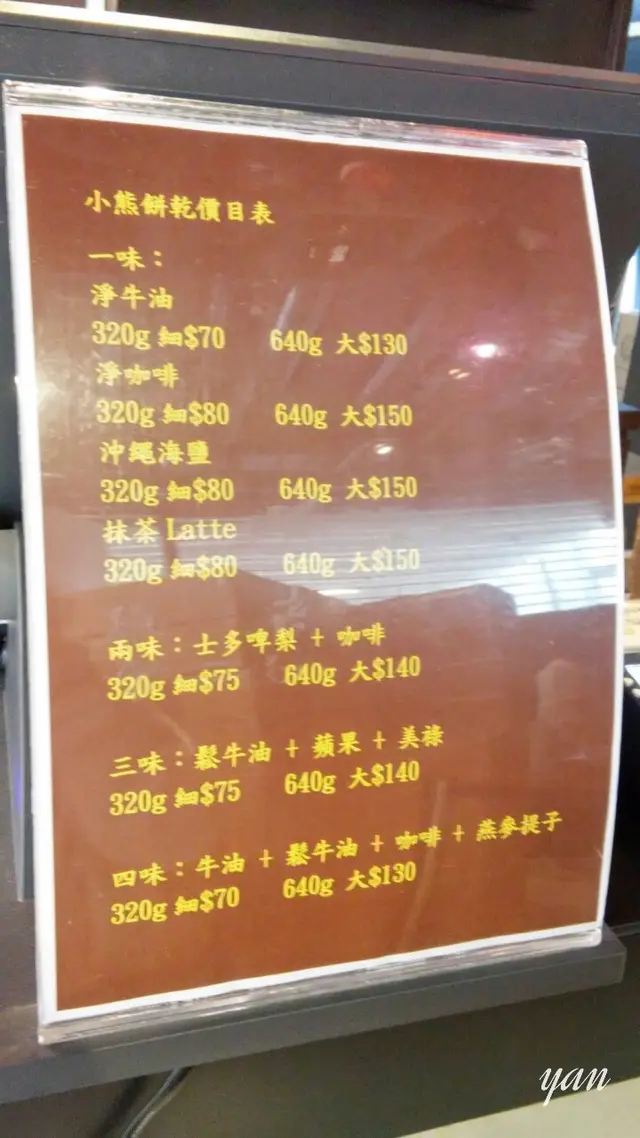 小熊餅乾價目表
一味：
淨牛油
320g 細$70 640g 大$130
淨咖啡
320g 細$80 640g 大$150
沖繩海鹽
320g 細$80 640g 大$150
抹茶 Latte
320g 細$80 640g 大$150
兩味：士多啤梨 + 咖啡
320g 細$75 640g 大$140
三味：鬆牛油 + 蘋果 + 美祿
320g 細$75 640g 大$140
四味：牛油 + 鬆牛油 + 咖啡 + 燕麥提子
320g 細$70 640g 大$130
yan